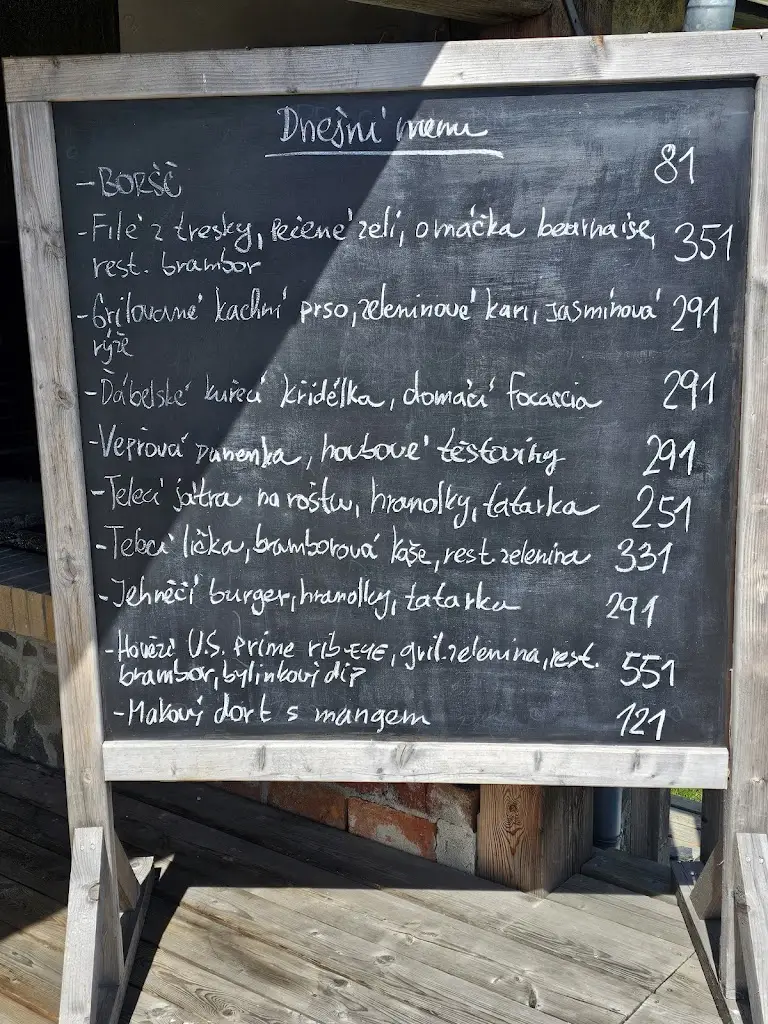 Dnešní menu
- BORŠČ 81
- Filé z tresky, pečené zelí, omáčka bearnaise, 351
rest. brambor
- Grilované kachní prso, zeleninové kari, jasmínová 291
rýže
- Ďábelské kuřecí křidélka, domácí focaccia 291
- Vepřová panenka, houbové těstoviny 291
- Telecí játra na roštu, hranolky, tatarka 251
- Telecí líčka, bramborová kaše, rest. zelenina 331
- Jehněčí burger, hranolky, tatarka 291
- Hovězí U.S. Prime rib-EYE, gril. zelenina, rest. 551
brambor, bylinkový dip
- Makový dort s mangem 121